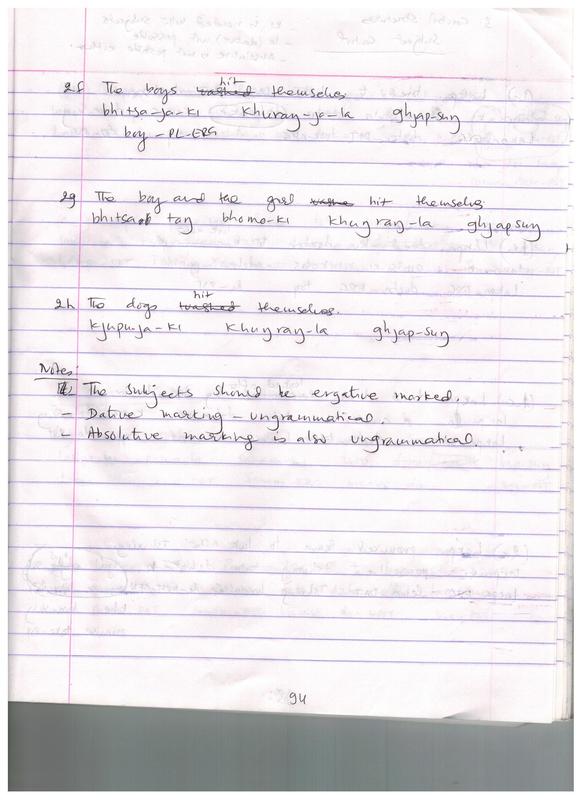 2f The boys washed hit themselves
bhitsa-ja-ki khuray-ja-la ghjap-suy
boy-PL-ERG
2g The boy and the girl hit themselves
bhitsa tay bhomo-ki khuyray-la ghjapsuy
2h The dogs washed hit themselves.
kjupu-ja-ki khuyray-la ghjap-suy
Notes:
The subjects should be ergative marked.
- Dative marking - ungrammatical.
- Absolutive marking is also ungrammatical.
94